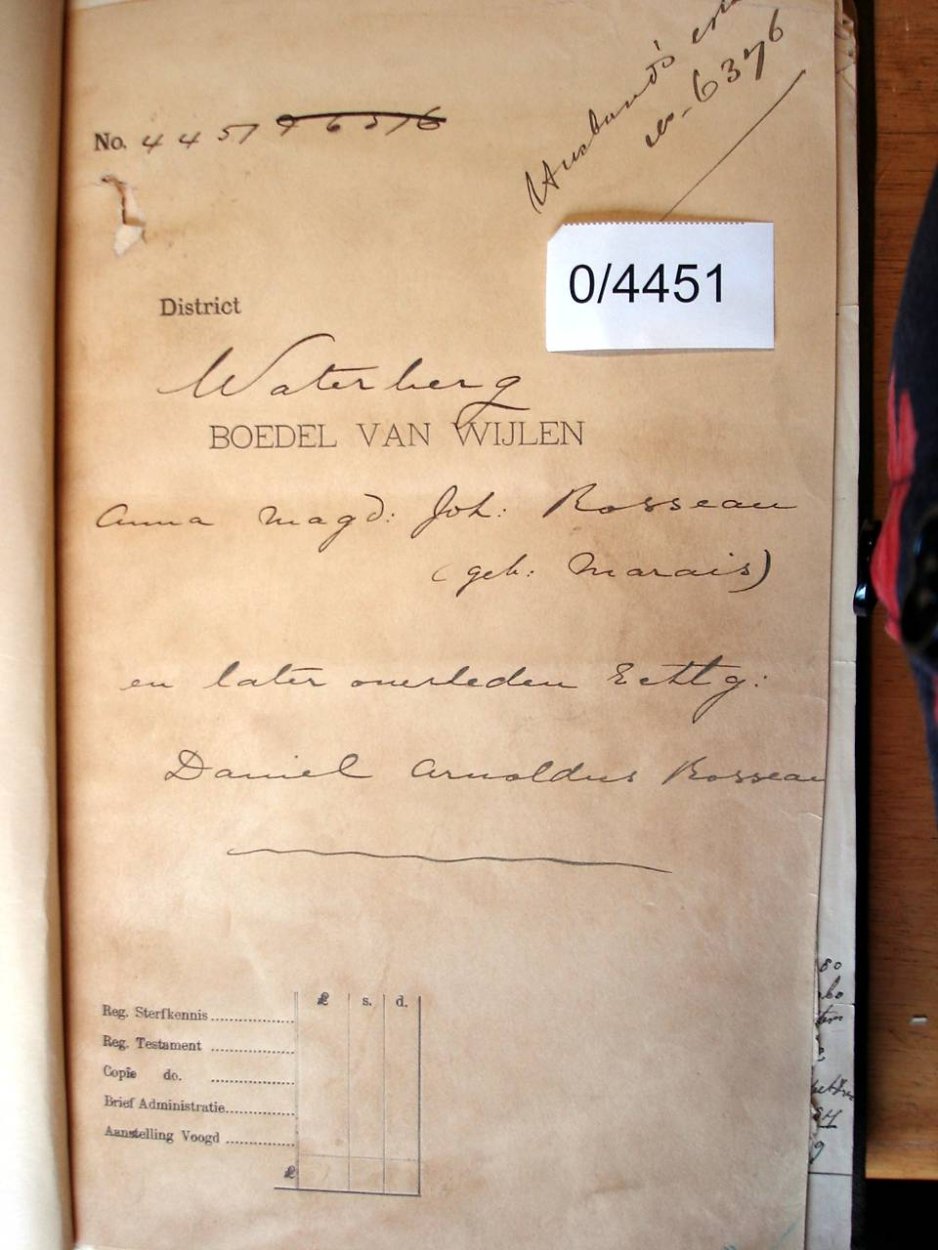 Husband's
no. 6376
No. 4451 & 6376
0/4451
District
Waterberg
BOEDEL VAN WIJLEN
Anna Magd: Joh: Rosseau
(geb: Marais)
en later overleden Echtg:
Daniel Arnoldus Rosseau
£ s. d.
Reg. Sterfkennis
Reg. Testament
Copie do.
Brief Administratie
Aanstelling Voogd
£